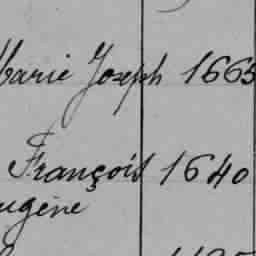 Marie Joseph 1665
François 1640
ugène